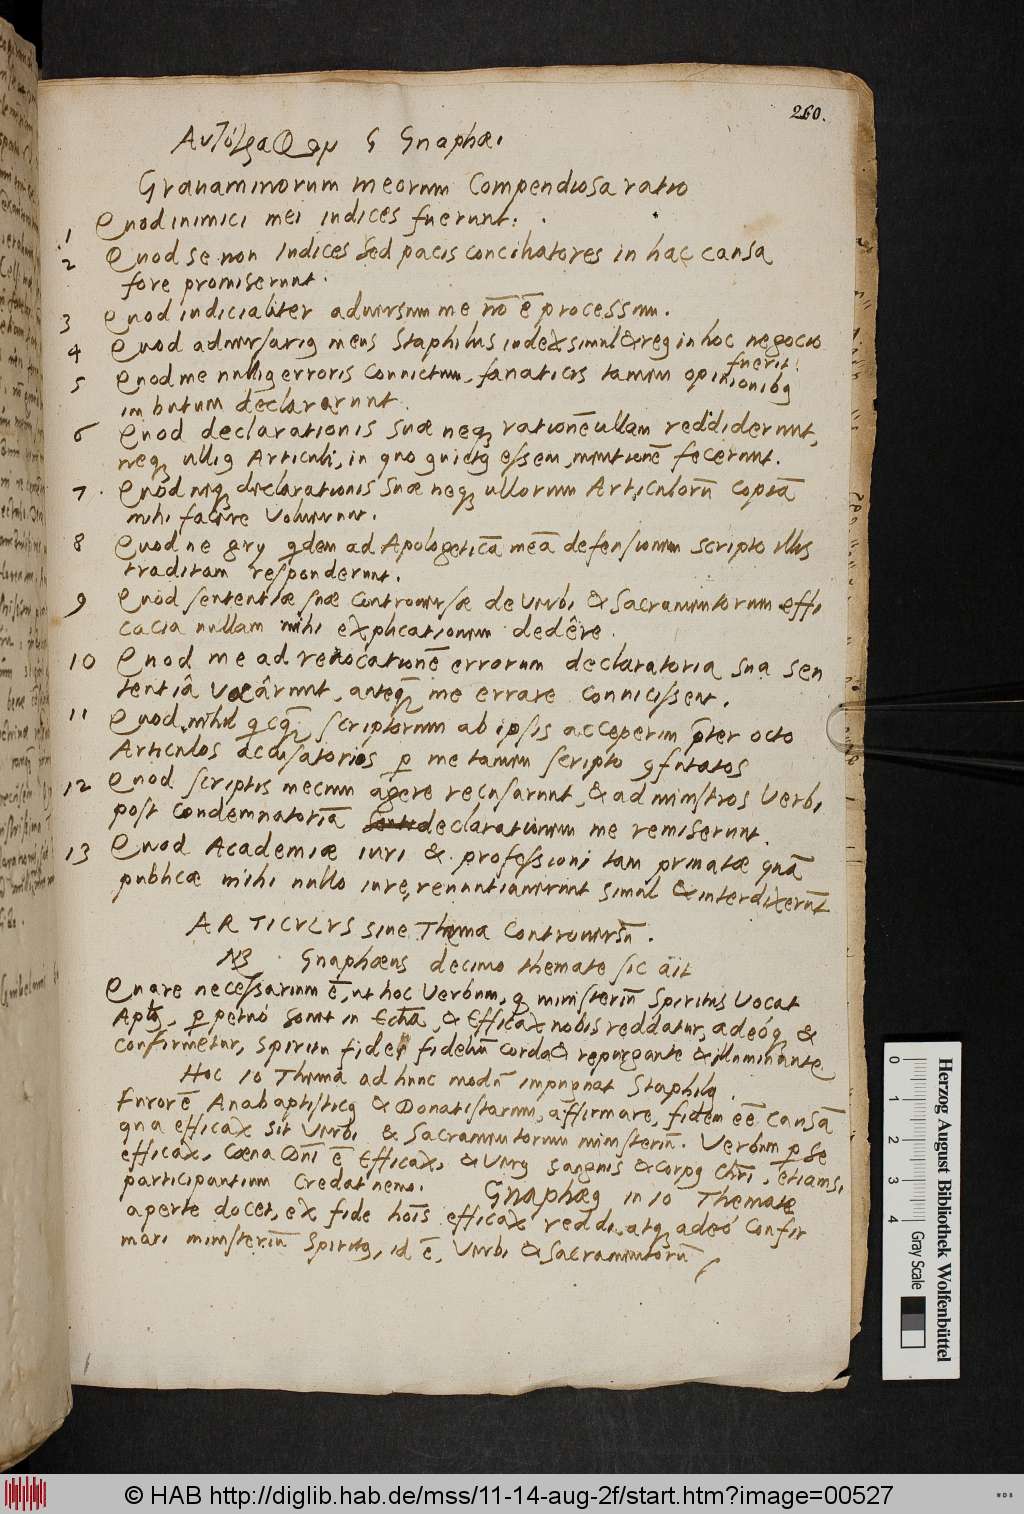 260.
Αὐτόγραφον G Gnaphæi
Grauaminorum meorum Compendiosa ratio
1 Quod inimici mei iudices fuerunt.
2 Quod se non Iudices sed pacis conciliatores in hac causa
fore promiserunt.
3 Quod iudicialiter aduersum me nō ē processum.
4 Quod aduersarig meus Staphilus iudex simul & reg in hoc negocio
fuerit.
5 Quod me nullig erroris conuictum, fanaticis tamen opinionibg
imbutum declararunt.
6 Quod declarationis suæ neq rationē ullam reddiderunt,
neq ullig Articuli, in quo guictg essem, mentionē fecerunt.
7. Quod neq declarationis suæ neq ullorum Articulorū copiā
mihi facere voluerunt.
8 Quod ne gry qdem ad Apologeticā meā defensionem scripto illis
traditam responderunt.
9 Quod sententiæ suæ controuersæ de Verbi & Sacramentorum effi
cacia nullam mihi explicationem dedêre.
10 Quod me ad reuocationē errorum declaratoria sua sen
tentiâ vocârunt, anteq me errare conuicissent.
11 Quod nihil qcq scriptorum ab ipsis acceperim pter octo
Articulos accusatorios p me tamen scripto gfutatos
12 Quod scriptis mecum agere recusarunt, & ad ministros Verbi
post condemnatoriā declarationem me remiserunt.
13 Quod Academiæ iuri & professioni tam priuatæ quā
publicæ mihi nullo iure, renuntiauerint simul & interdixerūt
ARTICVLVS sine Thema Controuersū.
NB Gnaphæus decimo themate sic ait
Quare necessarium ē, ut hoc Verbum, q ministeriū Spiritus vocat
Aplg, p petuó sonet in Ecclā, & Efficax nobis reddatur, adeóq &
confirmetur, spiritu fidei fideliū corda & repurgante & illuminante.
Hoc 10 Thema ad hunc modū impugnat Staphilg.
Furorē Anabaptisticg & Donatistarum, affirmare, fidem eē causā
qua efficax sit Verbi & Sacramentorum ministeriū. Verbum p se
efficax, Cœna Dōni ē Efficax, & Verg sanguis & Corpg Chrī, etiamsi
participantium credat nemo. Gnaphæg in 10 Themate
aperte docet, ex fide hoīs efficax reddi, atq adeó confir
mari ministeriū Spiritg, id ē, Verbi & Sacramentorū
0 1 2 3 4
Gray Scale
Herzog August Bibliothek Wolfenbüttel
© HAB http://diglib.hab.de/mss/11-14-aug-2f/start.htm?image=00527